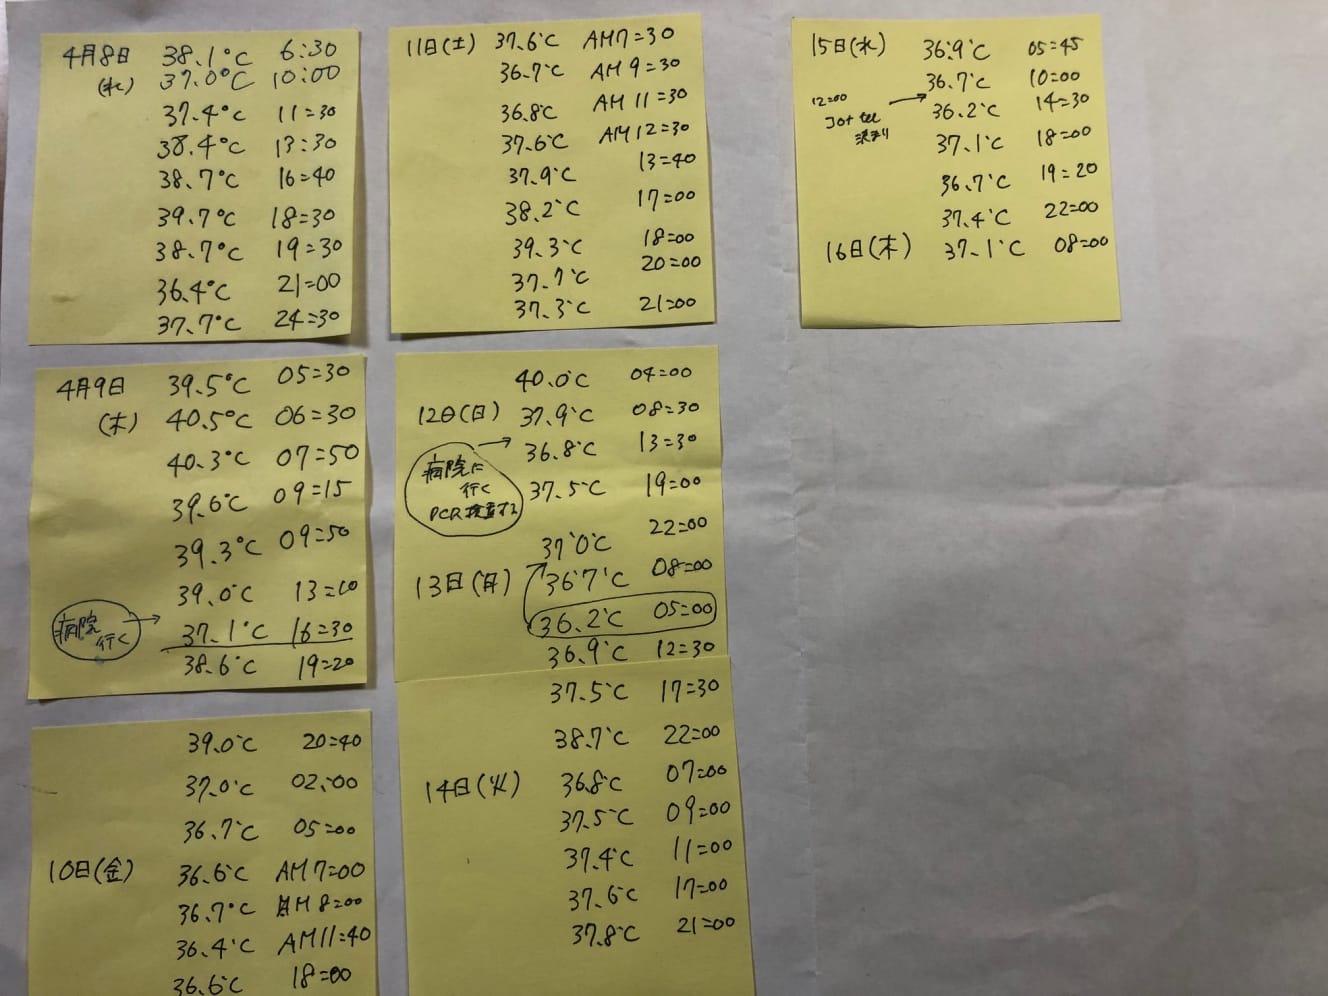 4月8日 38.1℃ 6:30
(水) 37.0℃ 10:00
37.4℃ 11=30
38.4℃ 13:30
38.7℃ 16=40
39.7℃ 18=30
38.7℃ 19=30
36.4℃ 21=00
37.7℃ 24=30
4月9日 39.5℃ 05=30
(木) 40.5℃ 06=30
40.3℃ 07=50
39.6℃ 09=15
39.3℃ 09=50
39.0℃ 13=10
病院行く 37.1℃ 16=30
38.6℃ 19=20
39.0℃ 20=40
37.0℃ 02:00
36.7℃ 05=00
10日(金) 36.6℃ AM7=00
36.7℃ AM8=00
36.4℃ AM11=40
36.6℃ 18=00
11日(土) 37.6℃ AM7=30
36.7℃ AM9=30
36.8℃ AM11=30
37.6℃ AM12=30
37.9℃ 13=40
38.2℃ 17=00
39.3℃ 18=00
37.7℃ 20=00
37.3℃ 21=00
40.0℃ 04=00
12日(日) 37.9℃ 08=30
36.8℃ 13=30
病院に
行く
PCR検査する
37.5℃ 19=00
37.0℃ 22=00
13日(月) 36.7℃ 08=00
36.2℃ 05=00
36.9℃ 12=30
37.5℃ 17=30
38.7℃ 22=00
14日(火) 36.8℃ 07=00
37.5℃ 09=00
37.4℃ 11=00
37.6℃ 17=00
37.8℃ 21=00
15日(水) 36.9℃ 05=45
36.7℃ 10=00
12=00
36.2℃ 14=30
37.1℃ 18=00
36.7℃ 19=20
37.4℃ 22=00
16日(木) 37.1℃ 08=00